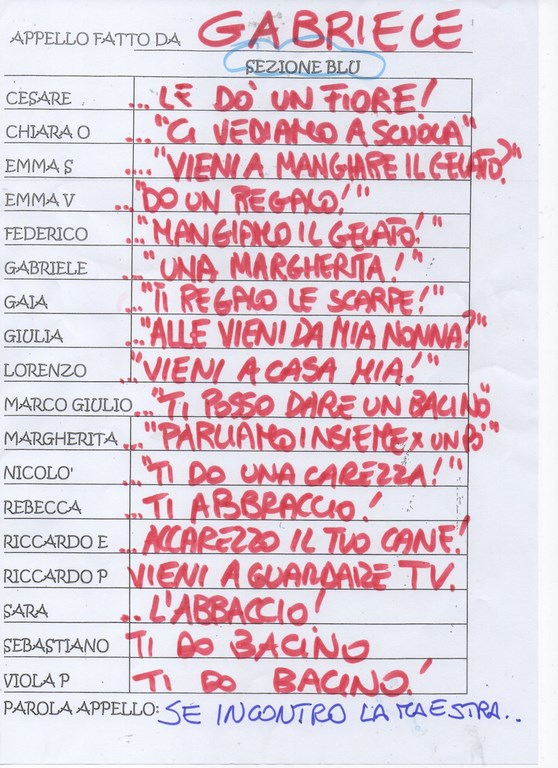 APPELLO FATTO DA GABRIELE
SEZIONE BLU
CESARE ... LE DO' UN FIORE!
CHIARA O ... "CI VEDIAMO A SCUOLA"
EMMA S .... "VIENI A MANGIARE IL GELATO?"
EMMA V ... "DO UN REGALO!"
FEDERICO ... "MANGIAMO IL GELATO!"
GABRIELE ... "UNA MARGHERITA!"
GAIA ... "TI REGALO LE SCARPE!"
GIULIA ... "ALLE VIENI DA MIA NONNA?"
LORENZO ... "VIENI A CASA MIA!"
MARCO GIULIO ... "TI POSSO DARE UN BACINO"
MARGHERITA ... "PARLIAMO INSIEME X UN PO'"
NICOLO' ... "TI DO UNA CAREZZA!"
REBECCA ... TI ABBRACCIO!
RICCARDO E ... ACCAREZZO IL TUO CANE!
RICCARDO P VIENI A GUARDARE TV.
SARA ... L'ABBACCIO!
SEBASTIANO TI DO BACINO
VIOLA P TI DO BACINO!
PAROLA APPELLO: SE INCONTRO LA MAESTRA..